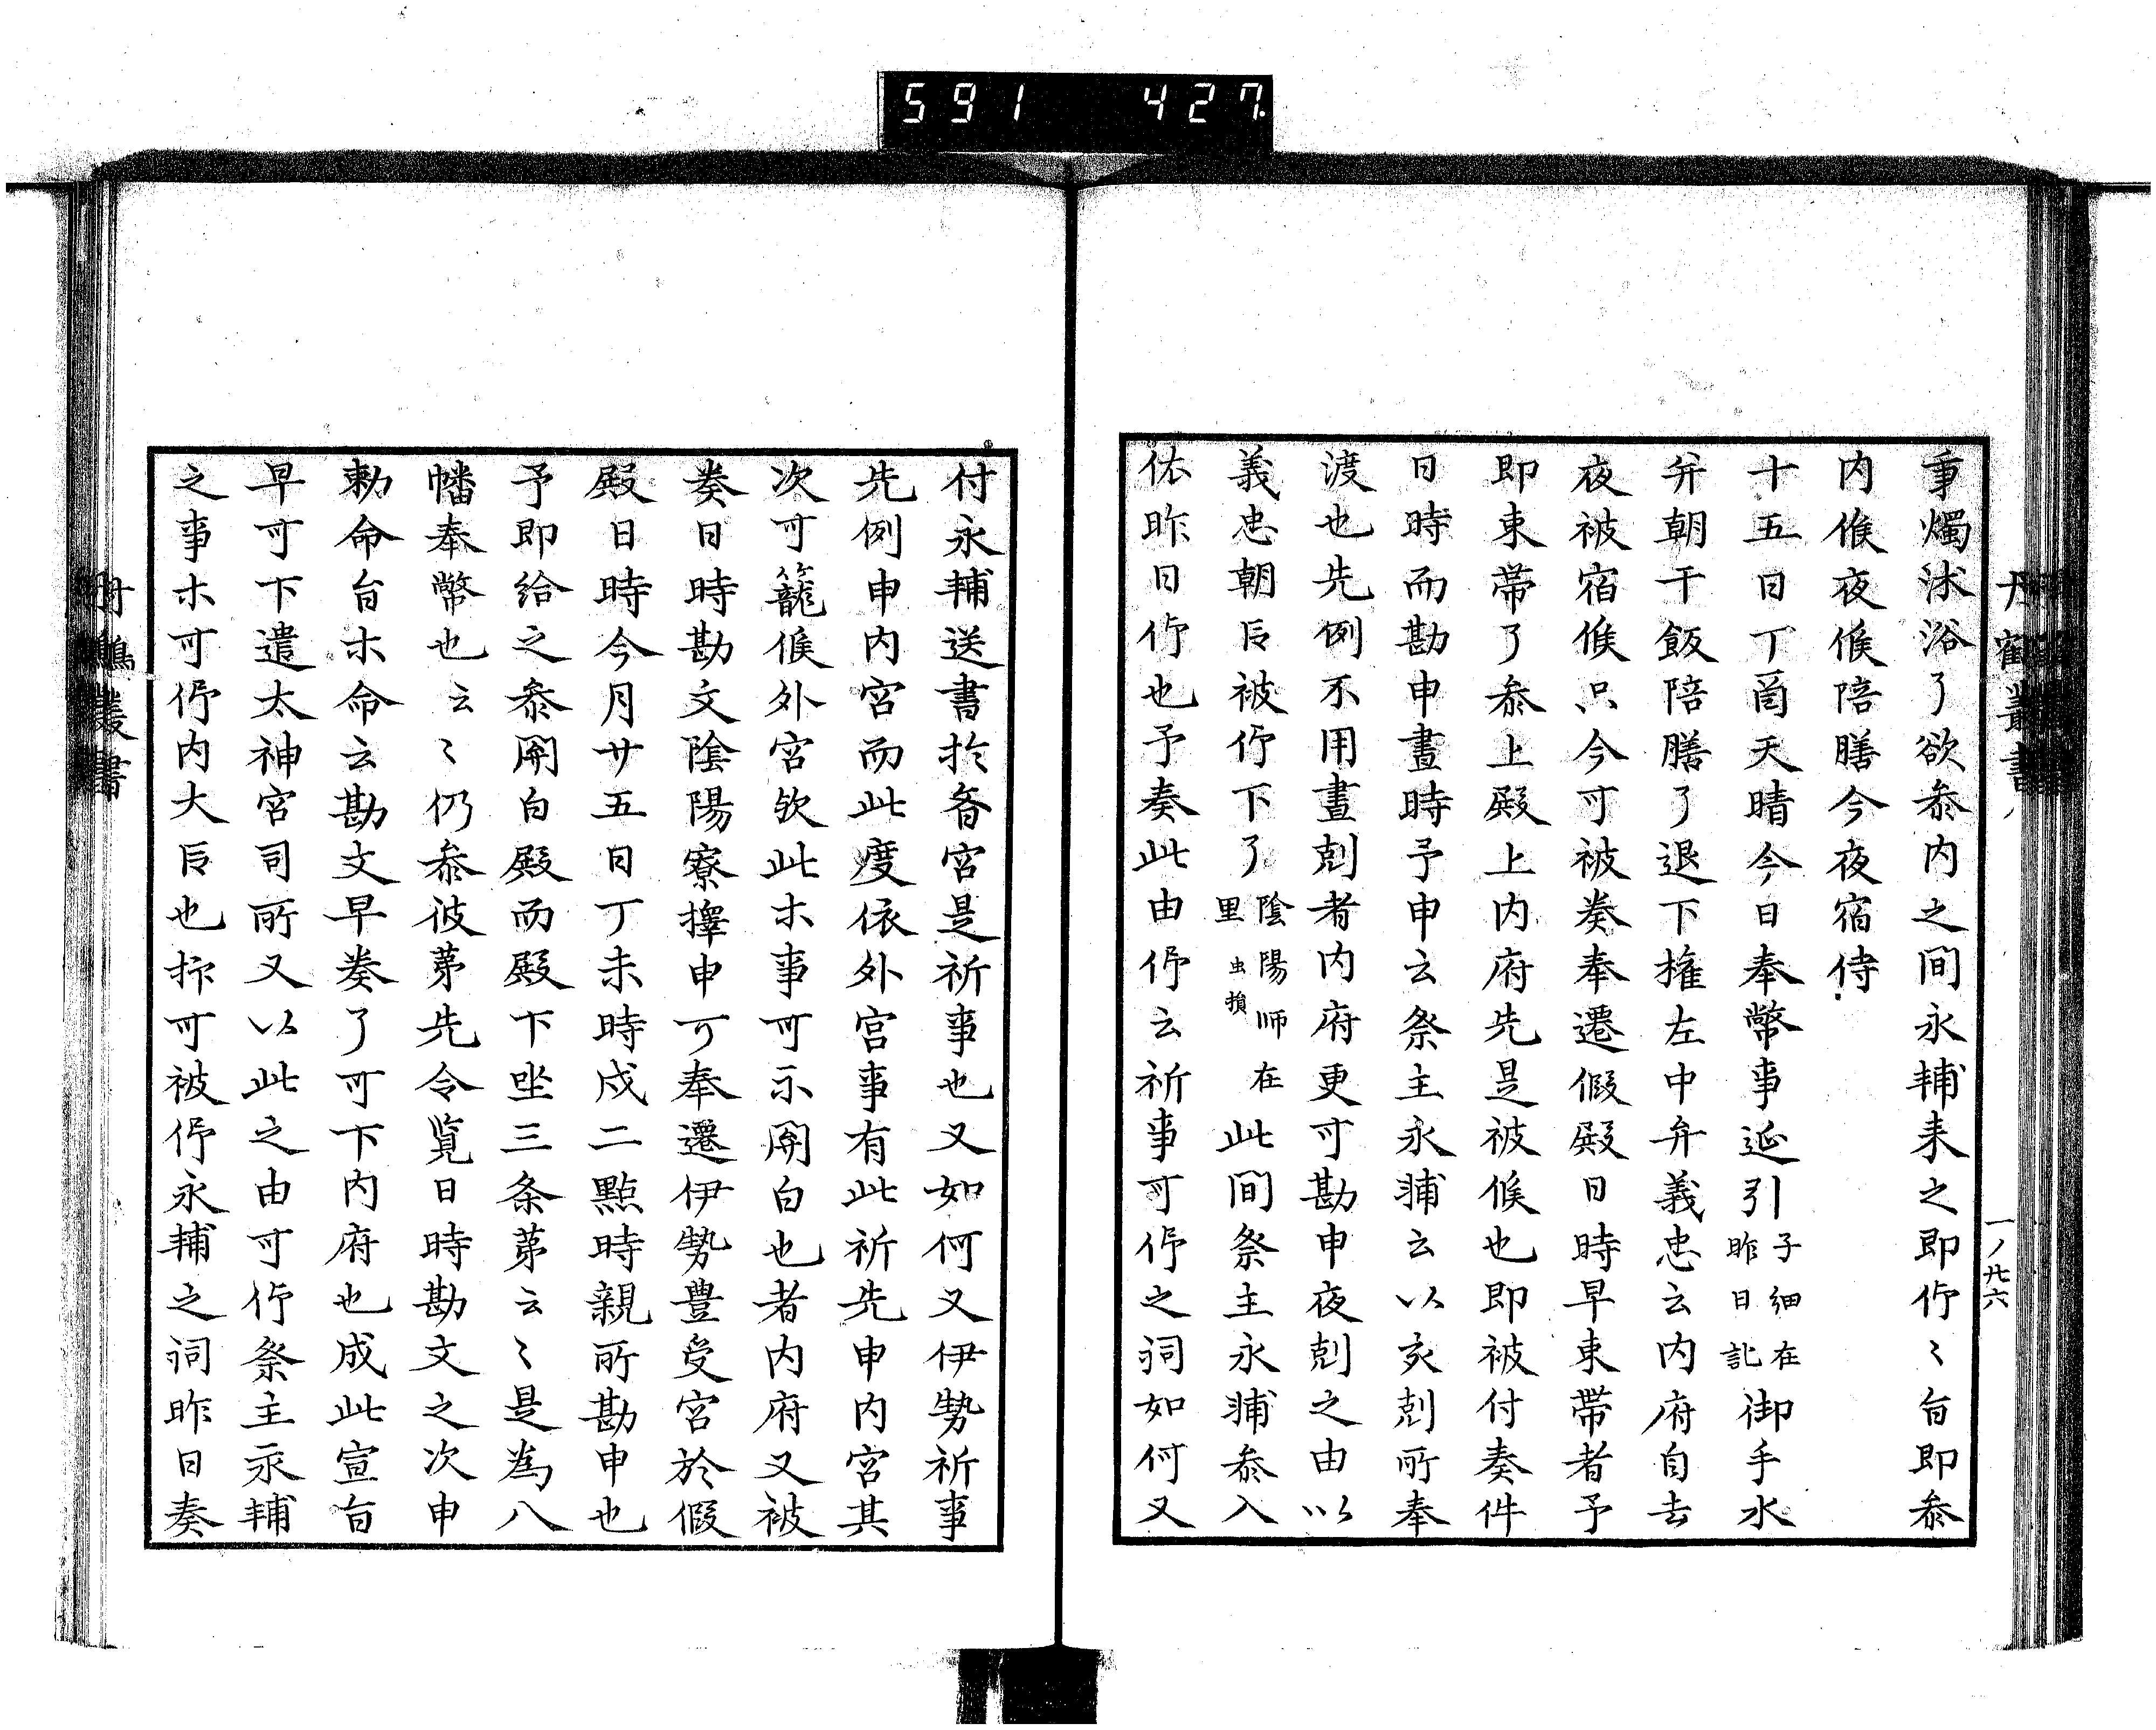 591 427.
丹鶴叢書
一ノ廿六
秉燭沐浴了欲参内之間永輔来之即仰〻旨即参
内候夜候陪膳今夜宿侍
十五日丁酉天晴今日奉幣事延引子細在昨日記御手水
弁朝干飯陪膳了退下権左中弁義忠云内府自去
夜被宿候只今可被奏奉遷假殿日時早束帯者予
即束帯了参上殿上内府先是被候也即被付奏件
日時而勘申晝時予申云祭主永輔云以亥剋所奉
渡也先例不用晝剋者内府更可勘申夜剋之由以
義忠朝臣被仰下了陰陽師在里虫損此間祭主永輔参入
依昨日仰也予奏此由仰云祈事可仰之詞如何又
付永輔送書於斎宮是祈事也又如何又伊勢祈事
先例申内宮而此度依外宮事有此祈先申内宮其
次可籠候外宮欤此ホ事可示関白也者内府又被
奏日時勘文陰陽寮擇申可奉遷伊勢豊受宮於假
殿日時今月廿五日丁未時戌二點時親所勘申也
予即給之参関白殿而殿下坐三条第云〻是為八
幡奉幣也云〻仍参彼第先令覧日時勘文之次申
勅命旨ホ命云勘文早奏了可下内府也成此宣旨
早可下遣太神宮司所又以此之由可仰祭主永輔
之事ホ可仰内大臣也抑可被仰永輔之詞昨日奏
丹鶴叢書